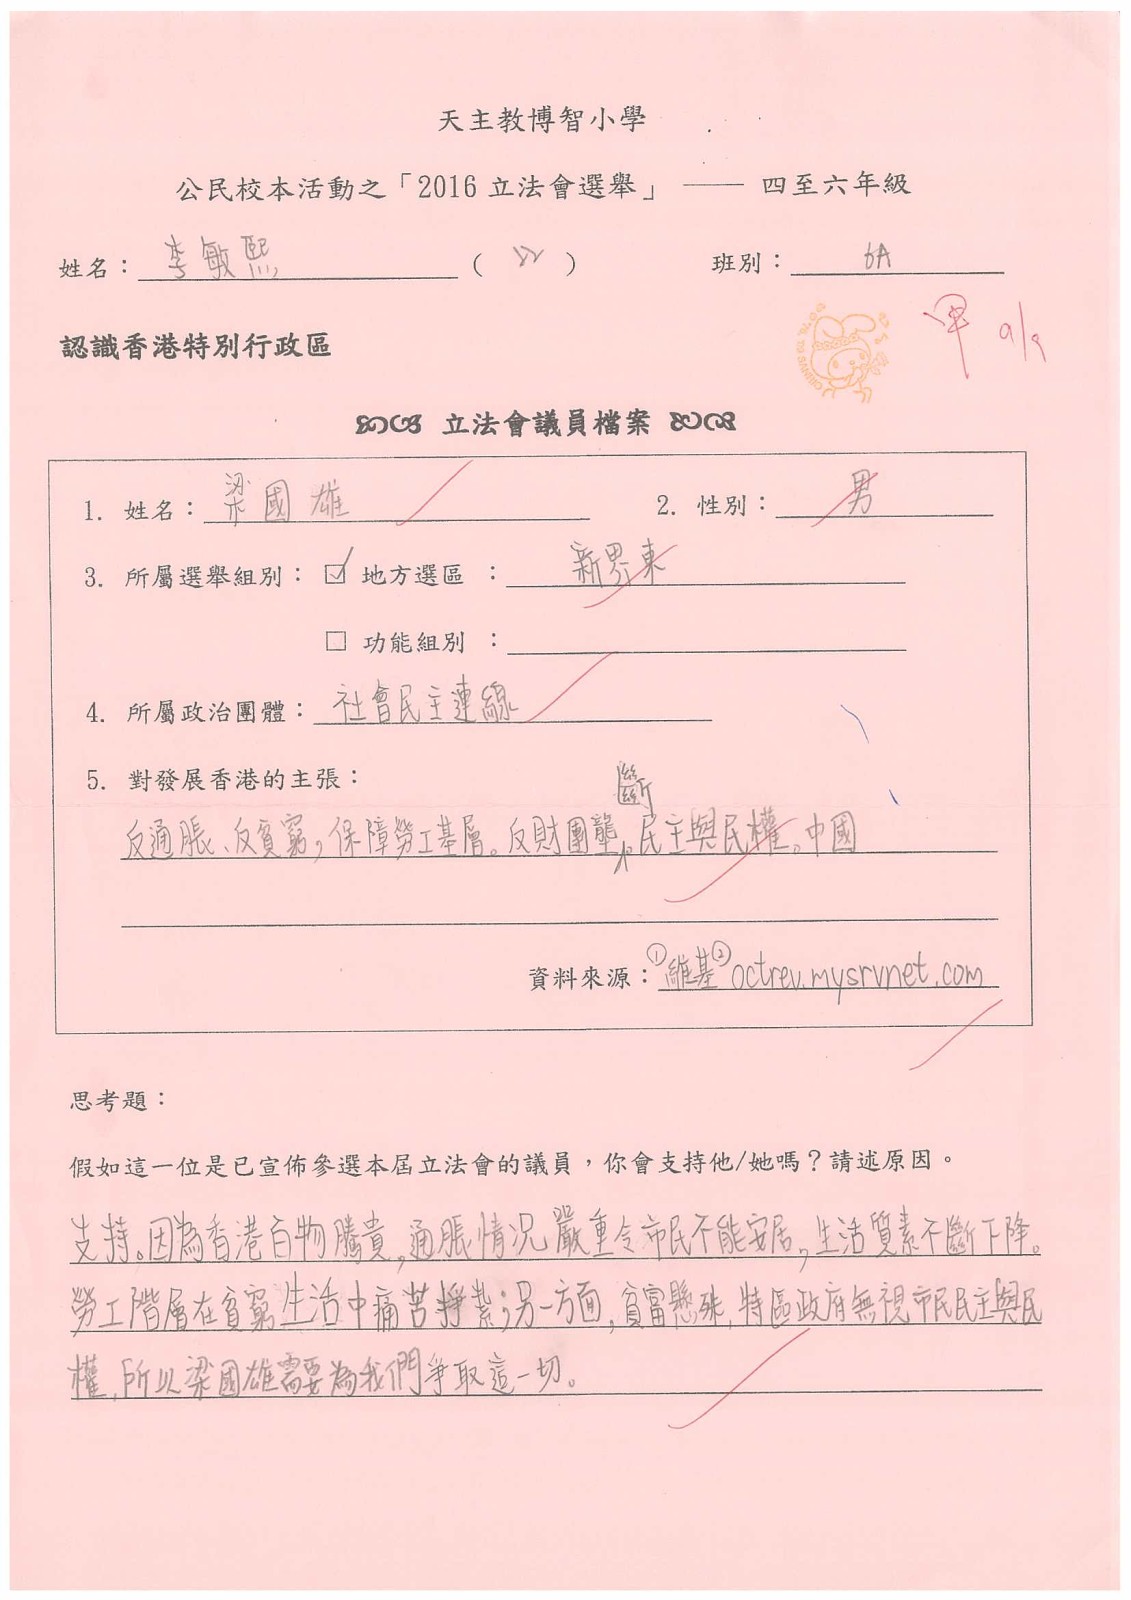 天主教博智小學
公民校本活動之「2016 立法會選舉」 —— 四至六年級
姓名：李敏熙 ( 22 ) 班別： 6A
認識香港特別行政區
9/9
立法會議員檔案
1. 姓名：梁國雄 2. 性別：男
3. 所屬選舉組別：☑ 地方選區 ：新界東
□ 功能組別 ：
4. 所屬政治團體：社會民主連線
5. 對發展香港的主張：
反通脹、反貧窮，保障勞工基層。反財團壟斷。民主與民權。中國
資料來源：①維基②octrev.mysrvnet.com
思考題：
假如這一位是已宣佈參選本屆立法會的議員，你會支持他/她嗎？請述原因。
支持。因為香港百物騰貴，通脹情況嚴重令市民不能安居，生活質素不斷下降。
勞工階層在貧窮生活中痛苦掙紮；另一方面，貧富懸殊，特區政府無視市民民主與民
權，所以梁國雄需要為我們爭取這一切。